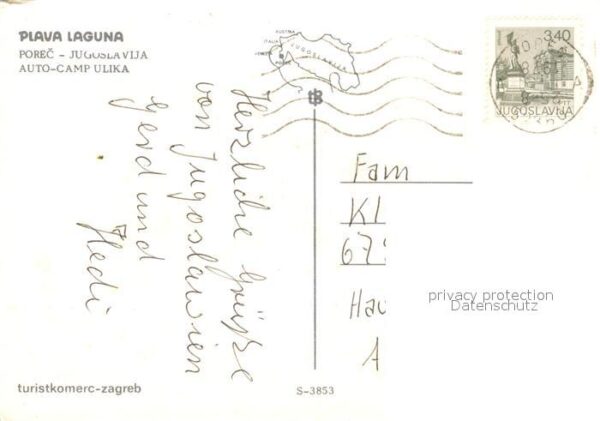 PLAVA LAGUNA
POREČ - JUGOSLAVIJA
AUTO-CAMP ULIKA
AUSTRIA
ITALIA
JUGOSLAVIJA
3,40
JUGOSLAVIJA
Herzliche Grüße
von Jugoslawien
Gerd und
Hedi
Fam
Kl
67
Hau
A
privacy protection
Datenschutz
turistkomerc-zagreb
S-3853